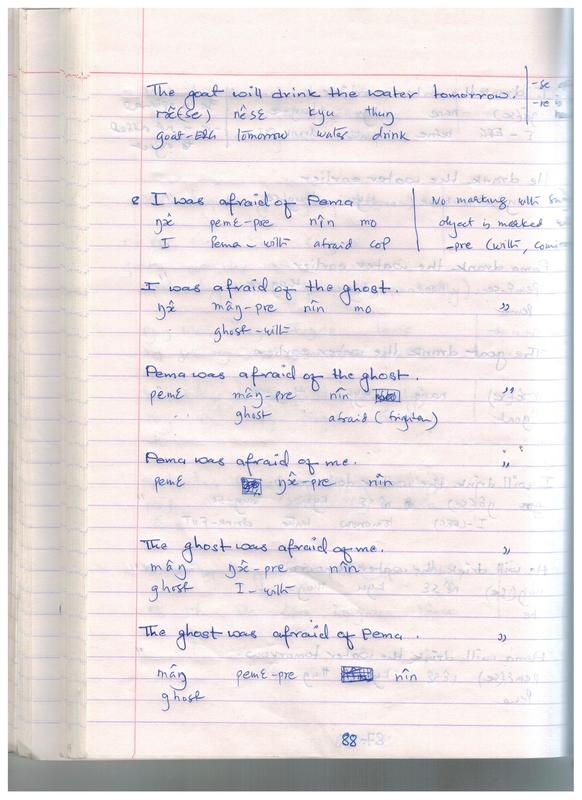 The goat will drink the water tomorrow. -se
rʌ̂(se) nêsɛ kyu thuŋ -re
goat-ERG tomorrow water drink
I was afraid of Pema No marking with
ŋʌ̂ pemɛ-pre nîn mo object is marked
I Pema-with afraid cop -pre (with,
I was afraid of the ghost. "
ŋʌ̂ mâŋ-pre nîn mo
ghost-with
Pema was afraid of the ghost. "
pemɛ mâŋ-pre nîn
ghost afraid (frighten)
Pema was afraid of me. "
pemɛ ŋʌ̂-pre nîn
The ghost was afraid of me. "
mâŋ ŋʌ̂-pre nîn
ghost I-with
The ghost was afraid of Pema. "
mâŋ pemɛ-pre nîn
ghost
88